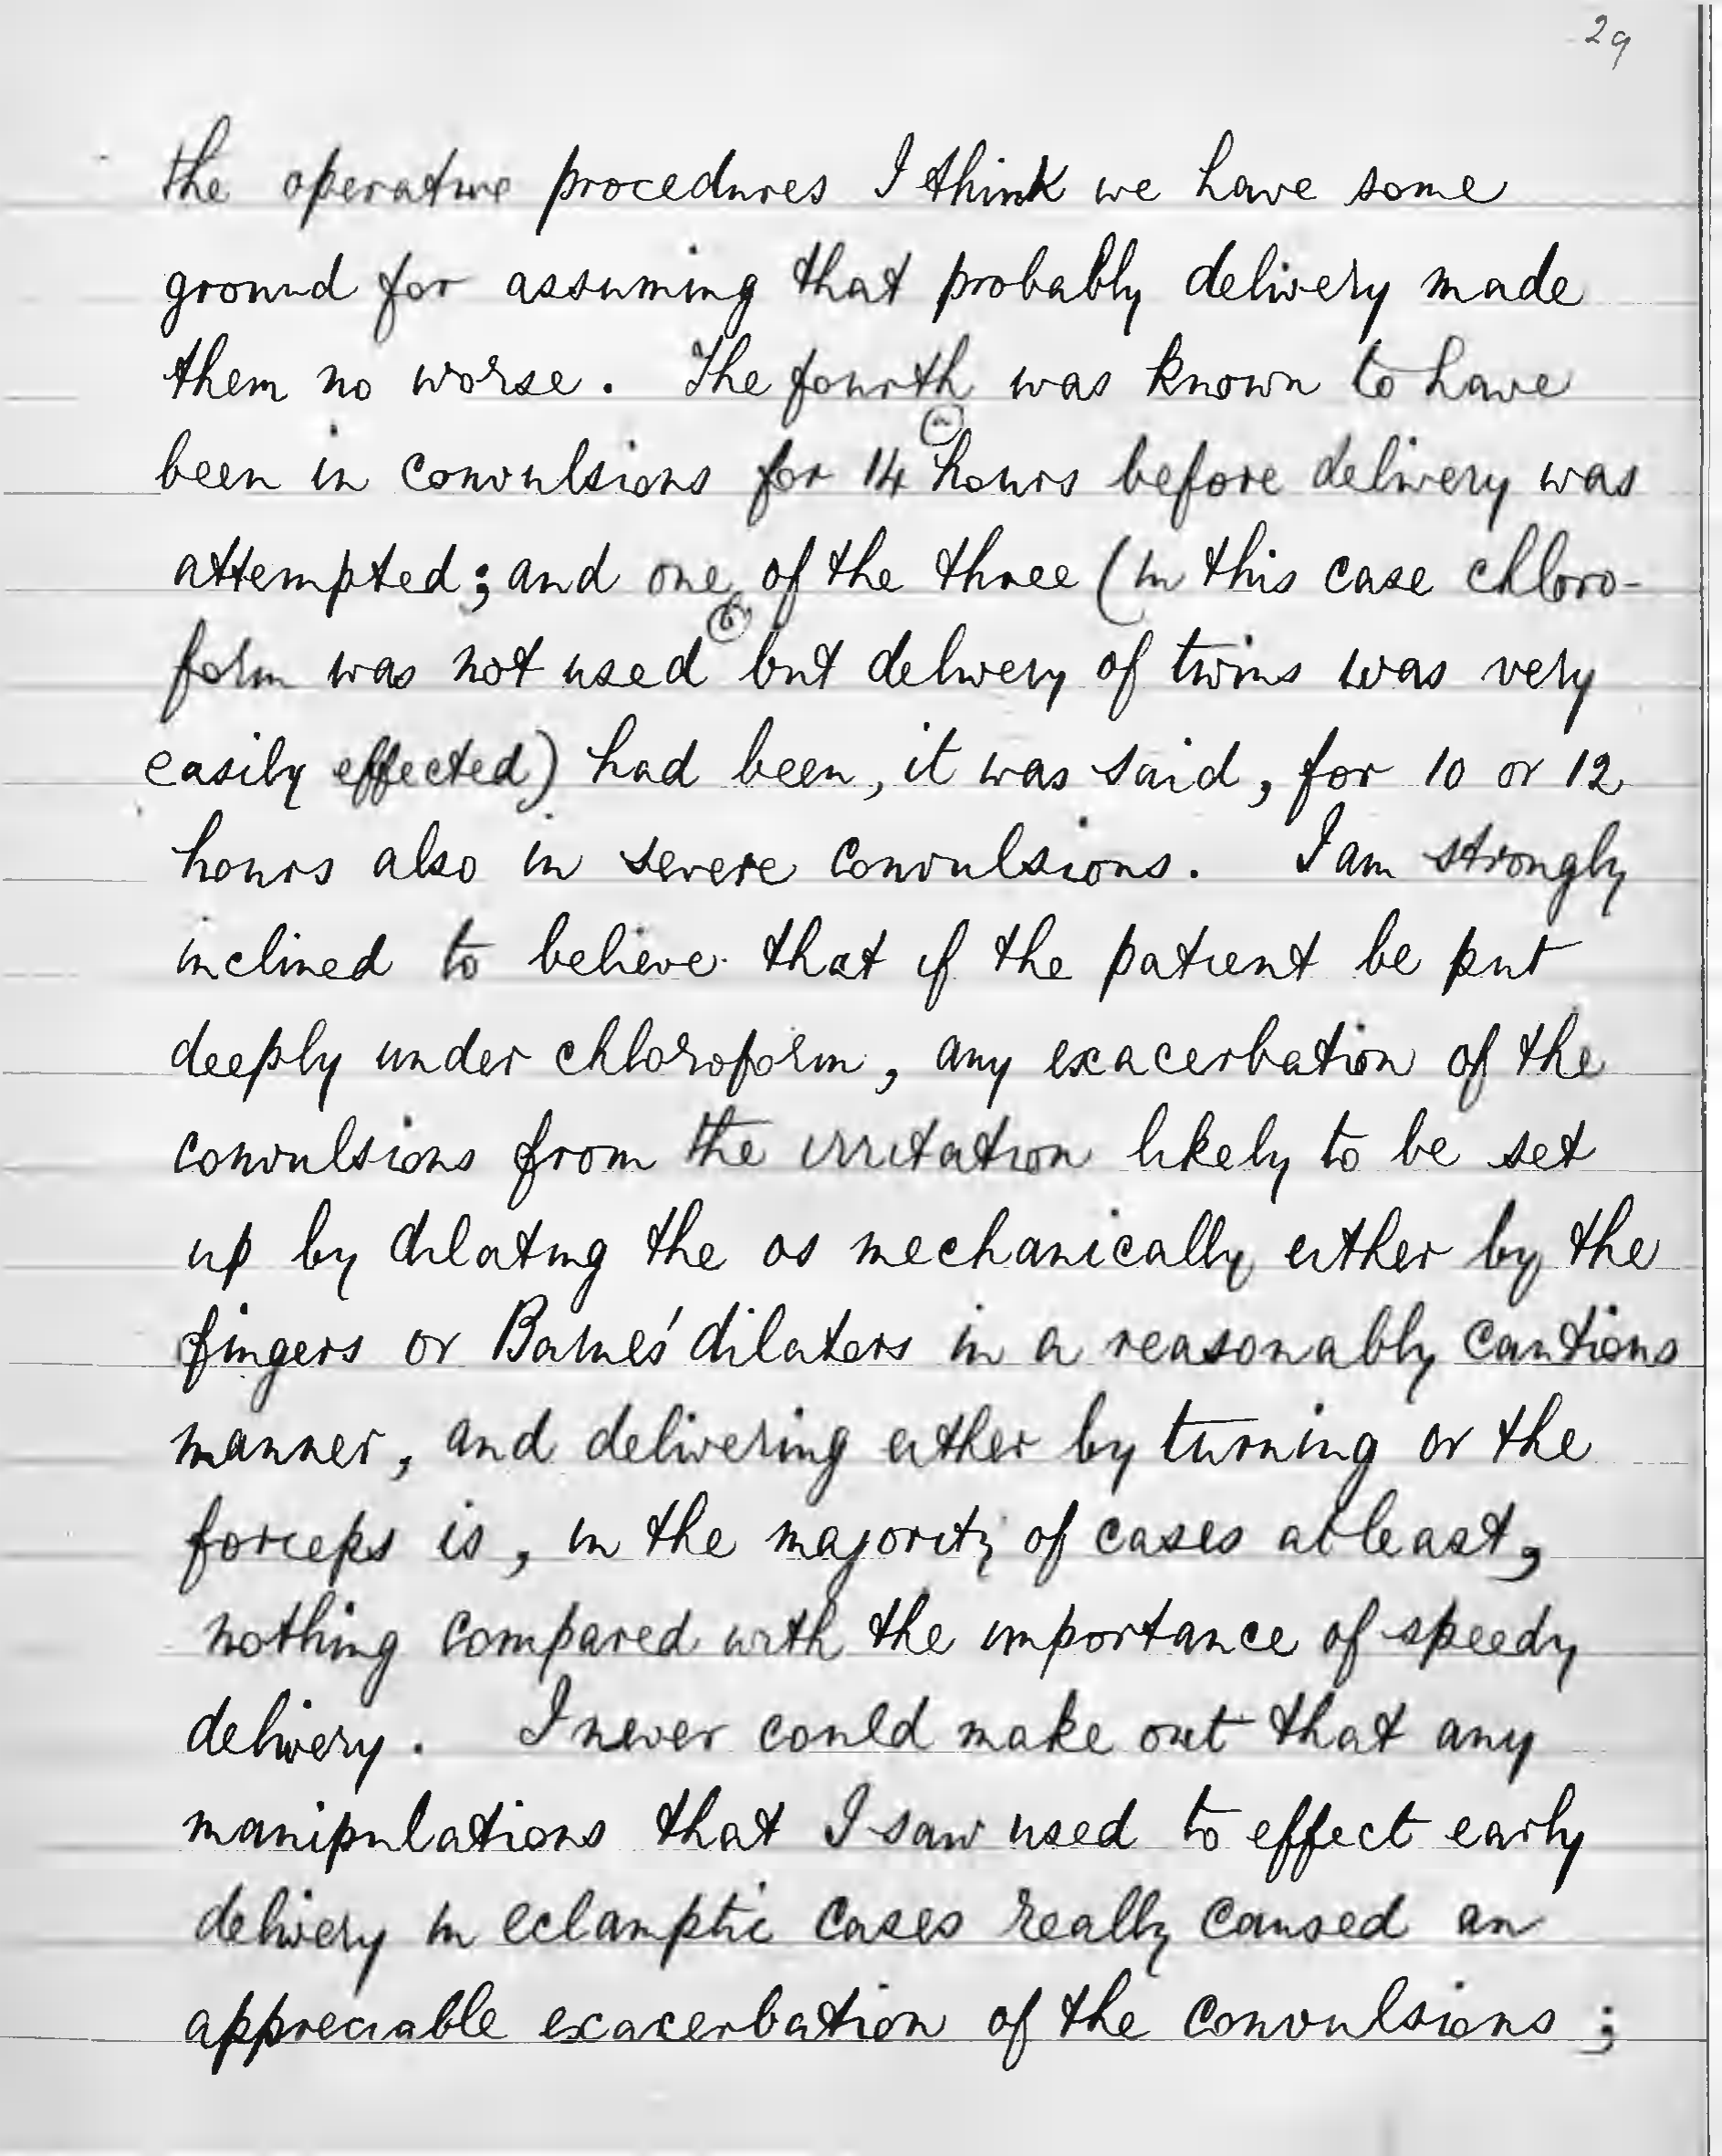 29
the operative procedures I think we have some
ground for assuming that probably delivery made
them no worse. The fourth was known to have
(a)
been in convulsions for 14 hours before delivery was
attempted; and one of the three (in this case chloro-
(b)
form was not used but delivery of twins was very
easily effected) had been, it was said, for 10 or 12
hours also in severe convulsions. I am strongly
inclined to believe that if the patient be put
deeply under chloroform, any exacerbation of the
convulsions from the irritation likely to be set
up by dilating the os mechanically either by the
fingers or Barnes' dilaters in a reasonably cautious
manner, and delivering either by turning or the
forceps is, in the majority of cases at least,
nothing compared with the importance of speedy
delivery. I never could make out that any
manipulations that I saw used to effect early
delivery in eclamptic cases really caused an
appreciable exacerbation of the convulsions;